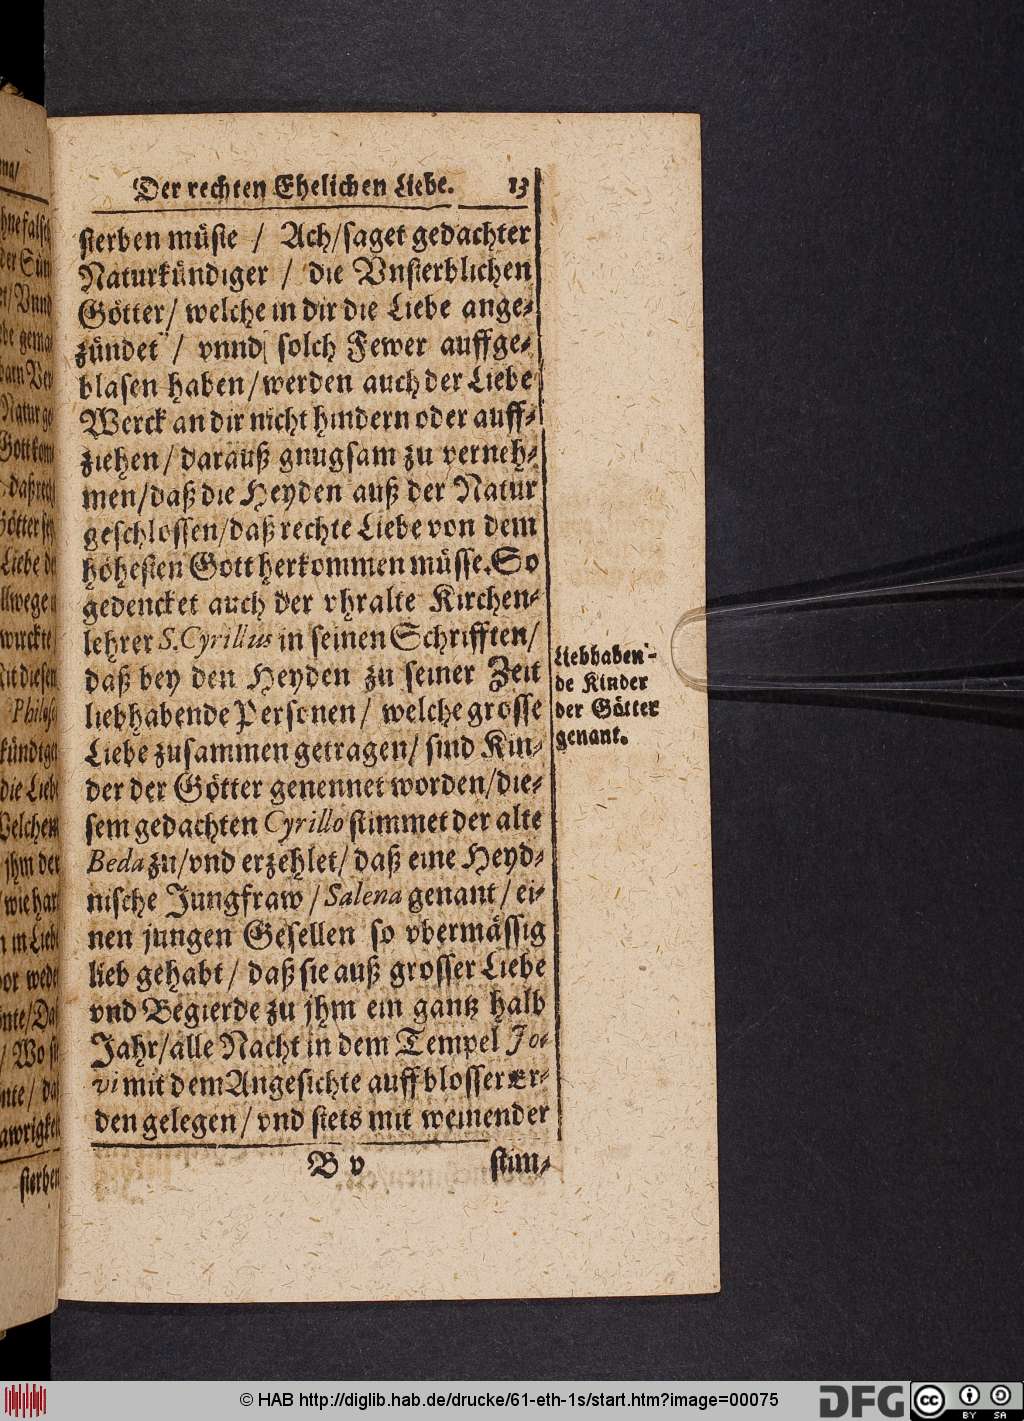 Der rechten Ehelichen Liebe. 13
sterben müste / Ach/saget gedachter
Naturkündiger / die Vnsterblichen
Götter/ welche in dir die Liebe ange-
zündet / vnnd solch Fewer auffge-
blasen haben/werden auch der Liebe
Werck an dir nicht hindern oder auff-
ziehen/ darauß gnugsam zu verneh-
men/daß die Heyden auß der Natur
geschlossen/daß rechte Liebe von dem
höhesten Gott herkommen müsse. So
gedencket auch der vhralte Kirchen-
lehrer S. Cyrillus in seinen Schrifften/
daß bey den Heyden zu seiner Zeit
liebhabende Personen/ welche grosse
Liebe zusammen getragen/ sind Kin-
der der Götter genennet worden/die-
sem gedachten Cyrillo stimmet der alte
Beda zu/vnd erzehlet/ daß eine Heyd-
nische Jungfraw / Salena genant/ ei-
nen jungen Gesellen so vbermässig
lieb gehabt/ daß sie auß grosser Liebe
vnd Begierde zu jhm ein gantz halb
Jahr/alle Nacht in dem Tempel Jo-
vi mit dem Angesichte auff blosser Er-
den gelegen/ vnd stets mit weinender
B v stim-
Liebhaben-
de Kinder
der Götter
genant.
© HAB http://diglib.hab.de/drucke/61-eth-1s/start.htm?image=00075
DFG
cc
BY SA